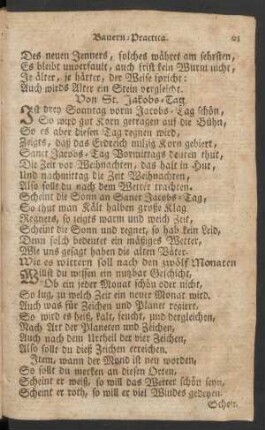 Bauern-Practica.
Des neuen Jenners, solches währet am sehrsten,
Es bleibt unverfault, auch frist kein Wurm nicht,
Je älter, je härter, der Weise spricht:
Auch wieds Alter ein Stein vergleicht.
Von St. Jakobs-Tag
Ist drey Sonntag vorm Jacobs-Tag schön,
So wird gut Korn getragen auf die Bühn,
So es aber diesen Tag regnen wird,
Zeigts, daß das Erdreich milzig Korn gebiert,
Sanct Jacobs-Tag Vormittags deuten thut,
Die Zeit vor Weihnachten, das halt in Hut,
Und nachmittag die Zeit Weihnachten,
Also sollt du nach dem Wetter trachten.
Scheint die Sonn an Sanct Jacobs-Tag,
So thut man Kält halben große Klag
Regnets, so zeigts warm und weich Zeit,
Scheint die Sonn und regnet, so hab kein Leid,
Denn solch bedeutet ein mäßiges Wetter,
Wie uns gesagt haben die alten Väter.
Wie es wittern soll nach den zwölf Monaten
Willst du wissen ein nutzbar Geschicht,
Ob ein jeder Monat schön oder nicht,
So lug, zu welch Zeit ein neuer Monat wird,
Auch was für Zeichen und Planet regiert.
So wird es heiß, kalt, feucht, und dergleichen,
Nach Art der Planeten und Zeichen,
Auch nach dem Urtheil der vier Zeichen,
Also sollt du dieß Zeichen erreichen.
Item, wann der Mond ist neu worden,
So sollt du merken an diesen Orten,
Scheint er weiß, so will das Wetter schön seyn,
Scheint er roth, so will er viel Windes gedeyen.